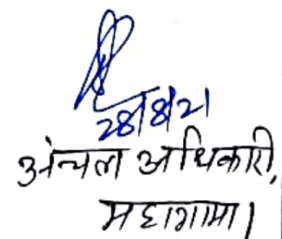 28/8/21
अंचल अधिकारी,
महागामा।